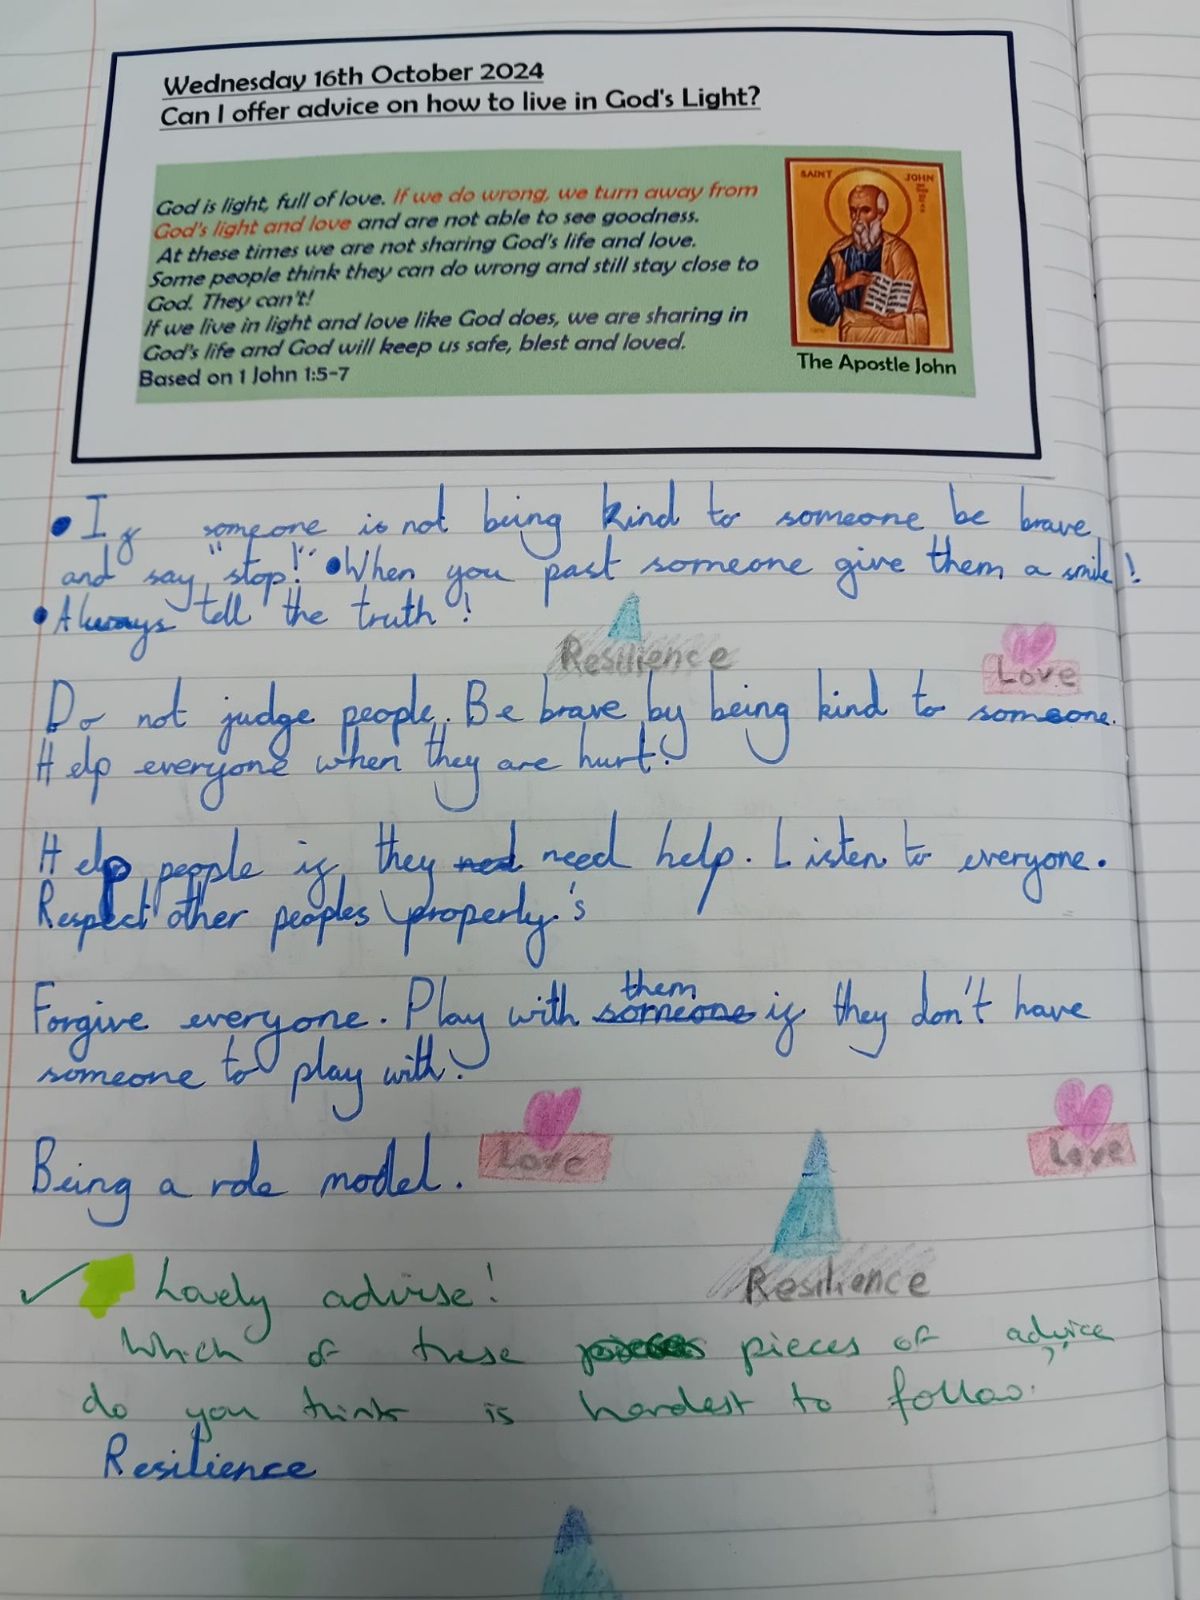 Wednesday 16th October 2024
Can I offer advice on how to live in God's Light?
God is light, full of love. If we do wrong, we turn away from
God's light and love and are not able to see goodness.
At these times we are not sharing God's life and love.
Some people think they can do wrong and still stay close to
God. They can't!
If we live in light and love like God does, we are sharing in
God's life and God will keep us safe, blest and loved.
Based on 1 John 1:5-7
SAINT JOHN
The Apostle John
• If someone is not being kind to someone be brave
and say "stop!" • When you past someone give them a smile!
• Always tell the truth!
Resilience
Love
Do not judge people. Be brave by being kind to someone.
Help everyone when they are hurt!
Help people if they ned need help. Listen to everyone.
Respect other peoples properly.'s
them
Forgive everyone. Play with someone if they don't have
someone to play with!
Love
Love
Being a role model.
Resilience
Lovely advise!
Which of these pieces pieces of advice
do you think is hardest to follow.
Resilience